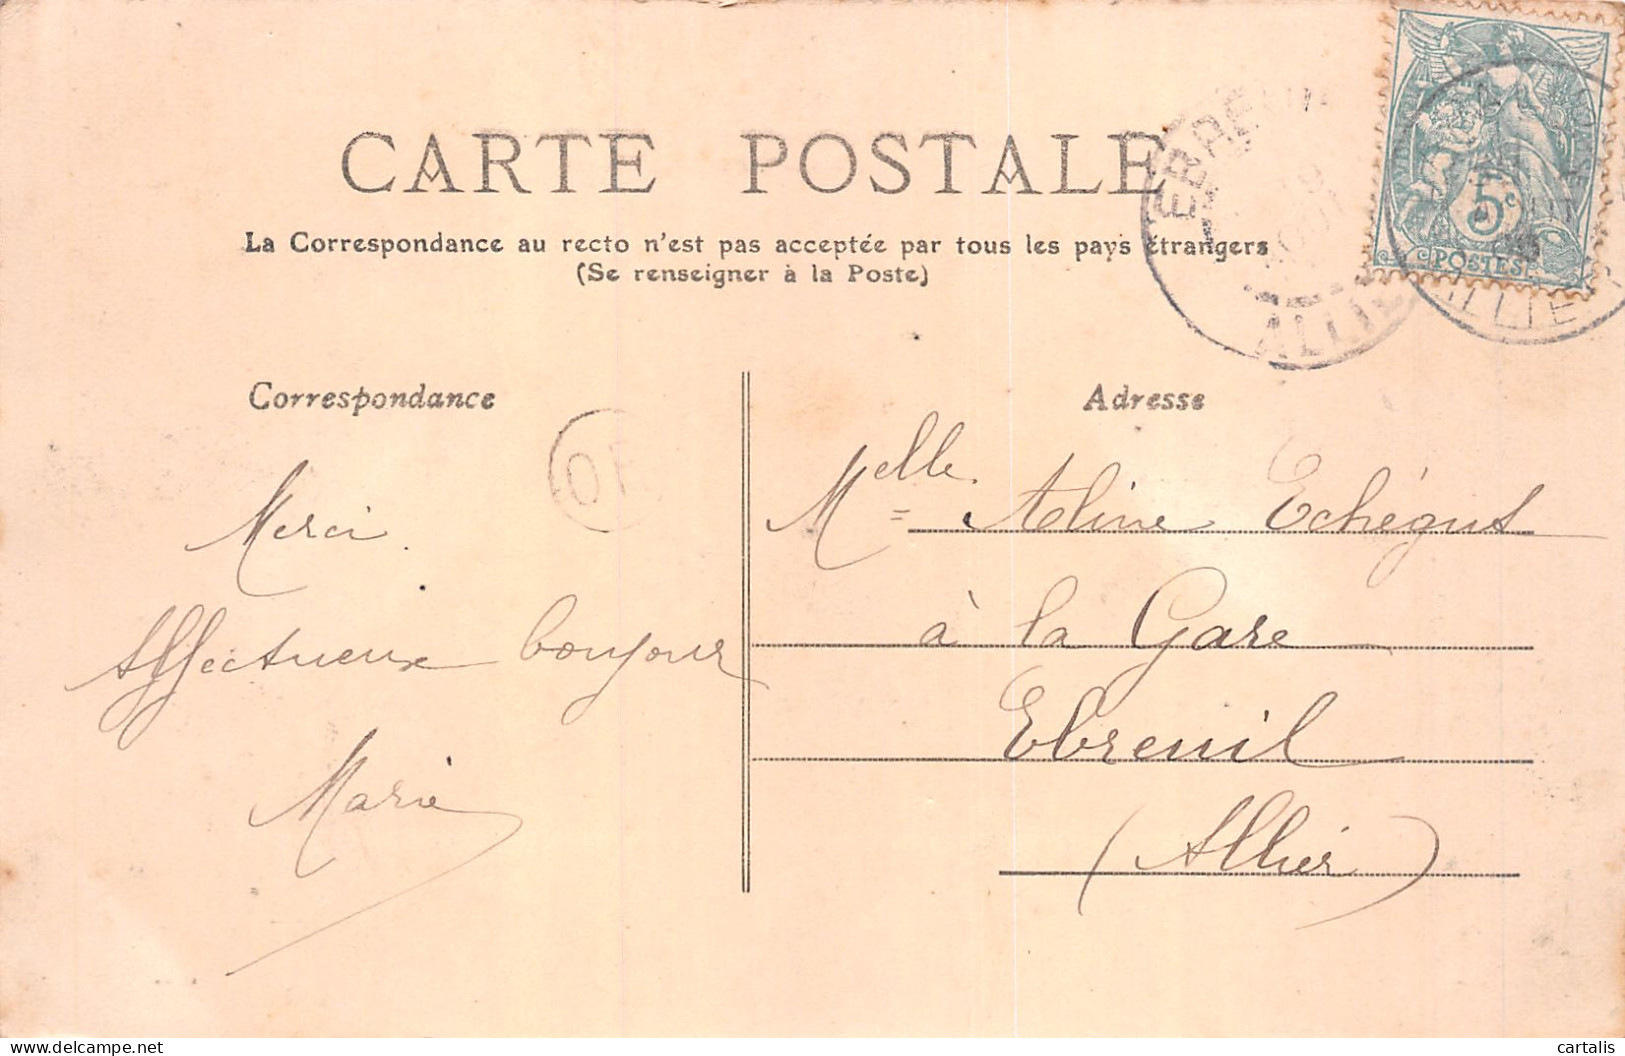 CARTE POSTALE
La Correspondance au recto n'est pas acceptée par tous les pays étrangers
(Se renseigner à la Poste)
5c
POSTES
EBREUIL
ALLIER
ALLIER
Correspondance
OR
Merci
Affectueux bonjour
Marie
Adresse
Melle Aline Echégut
à la Gare
Ebreuil
(Allier)
delcampe.net
cartalis